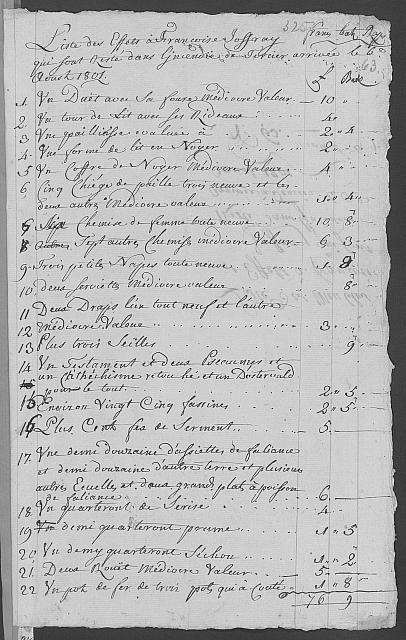 325
francs batz Raps
Liste des Effets à Francoise Joffray
qui sont resté dans Gincendie de Torcier arrivée le 6
Aoust 1801.
63
£ Batz
1 Un Duët avec Sa foure Médiocre Valeur 10 "
2 Un tour de Lit avec Les Rideaux 4 "
3 Une pailliasse evaluée à 2 " 4
4 Une forme de lit en Noyer 2 "
5 Un Coffre de Noyer Médiocre Valeur 4 "
6 Cinq Chiége de paille trois neuve et les
deux autres Médiocre valeur 1 " 4
Chemise de femme toute neuve 10 8
8 Sept autres Chemise médiocre Valeur 6 3
9 Trois petites Napes toute neuve 1 8
10 deux Serviettes Médiocre valeur 8 "
11 Deux Draps l'un tout neuf et l'autre
12 Médiocre Valeur 3
13 Plus trois Seilles 9
14 Un Testament et deux Pseaumes et
un Chathéchisme retouché et un Dostervald
pour le tout 2 " 5
15 Environ Vingt Cinq fassines 2 5
16 Plus Cent de Serment 5
17 Une demi douzaine d'assiettes de faliance
et demi douzaine d'autre terre et plusieurs
autres Ecuelle et deux grand plat à poison
de faliance 6
18 Un quarteront de Serise 4
19 Un demi quarteront preume 1 " 5
20 Un demy quarteront Séchou 1 " 2
21 Deux Rouët Médiocre Valeur 5
22 Un pot de fer de trois pots qui a Couté 1 " 8
76 9